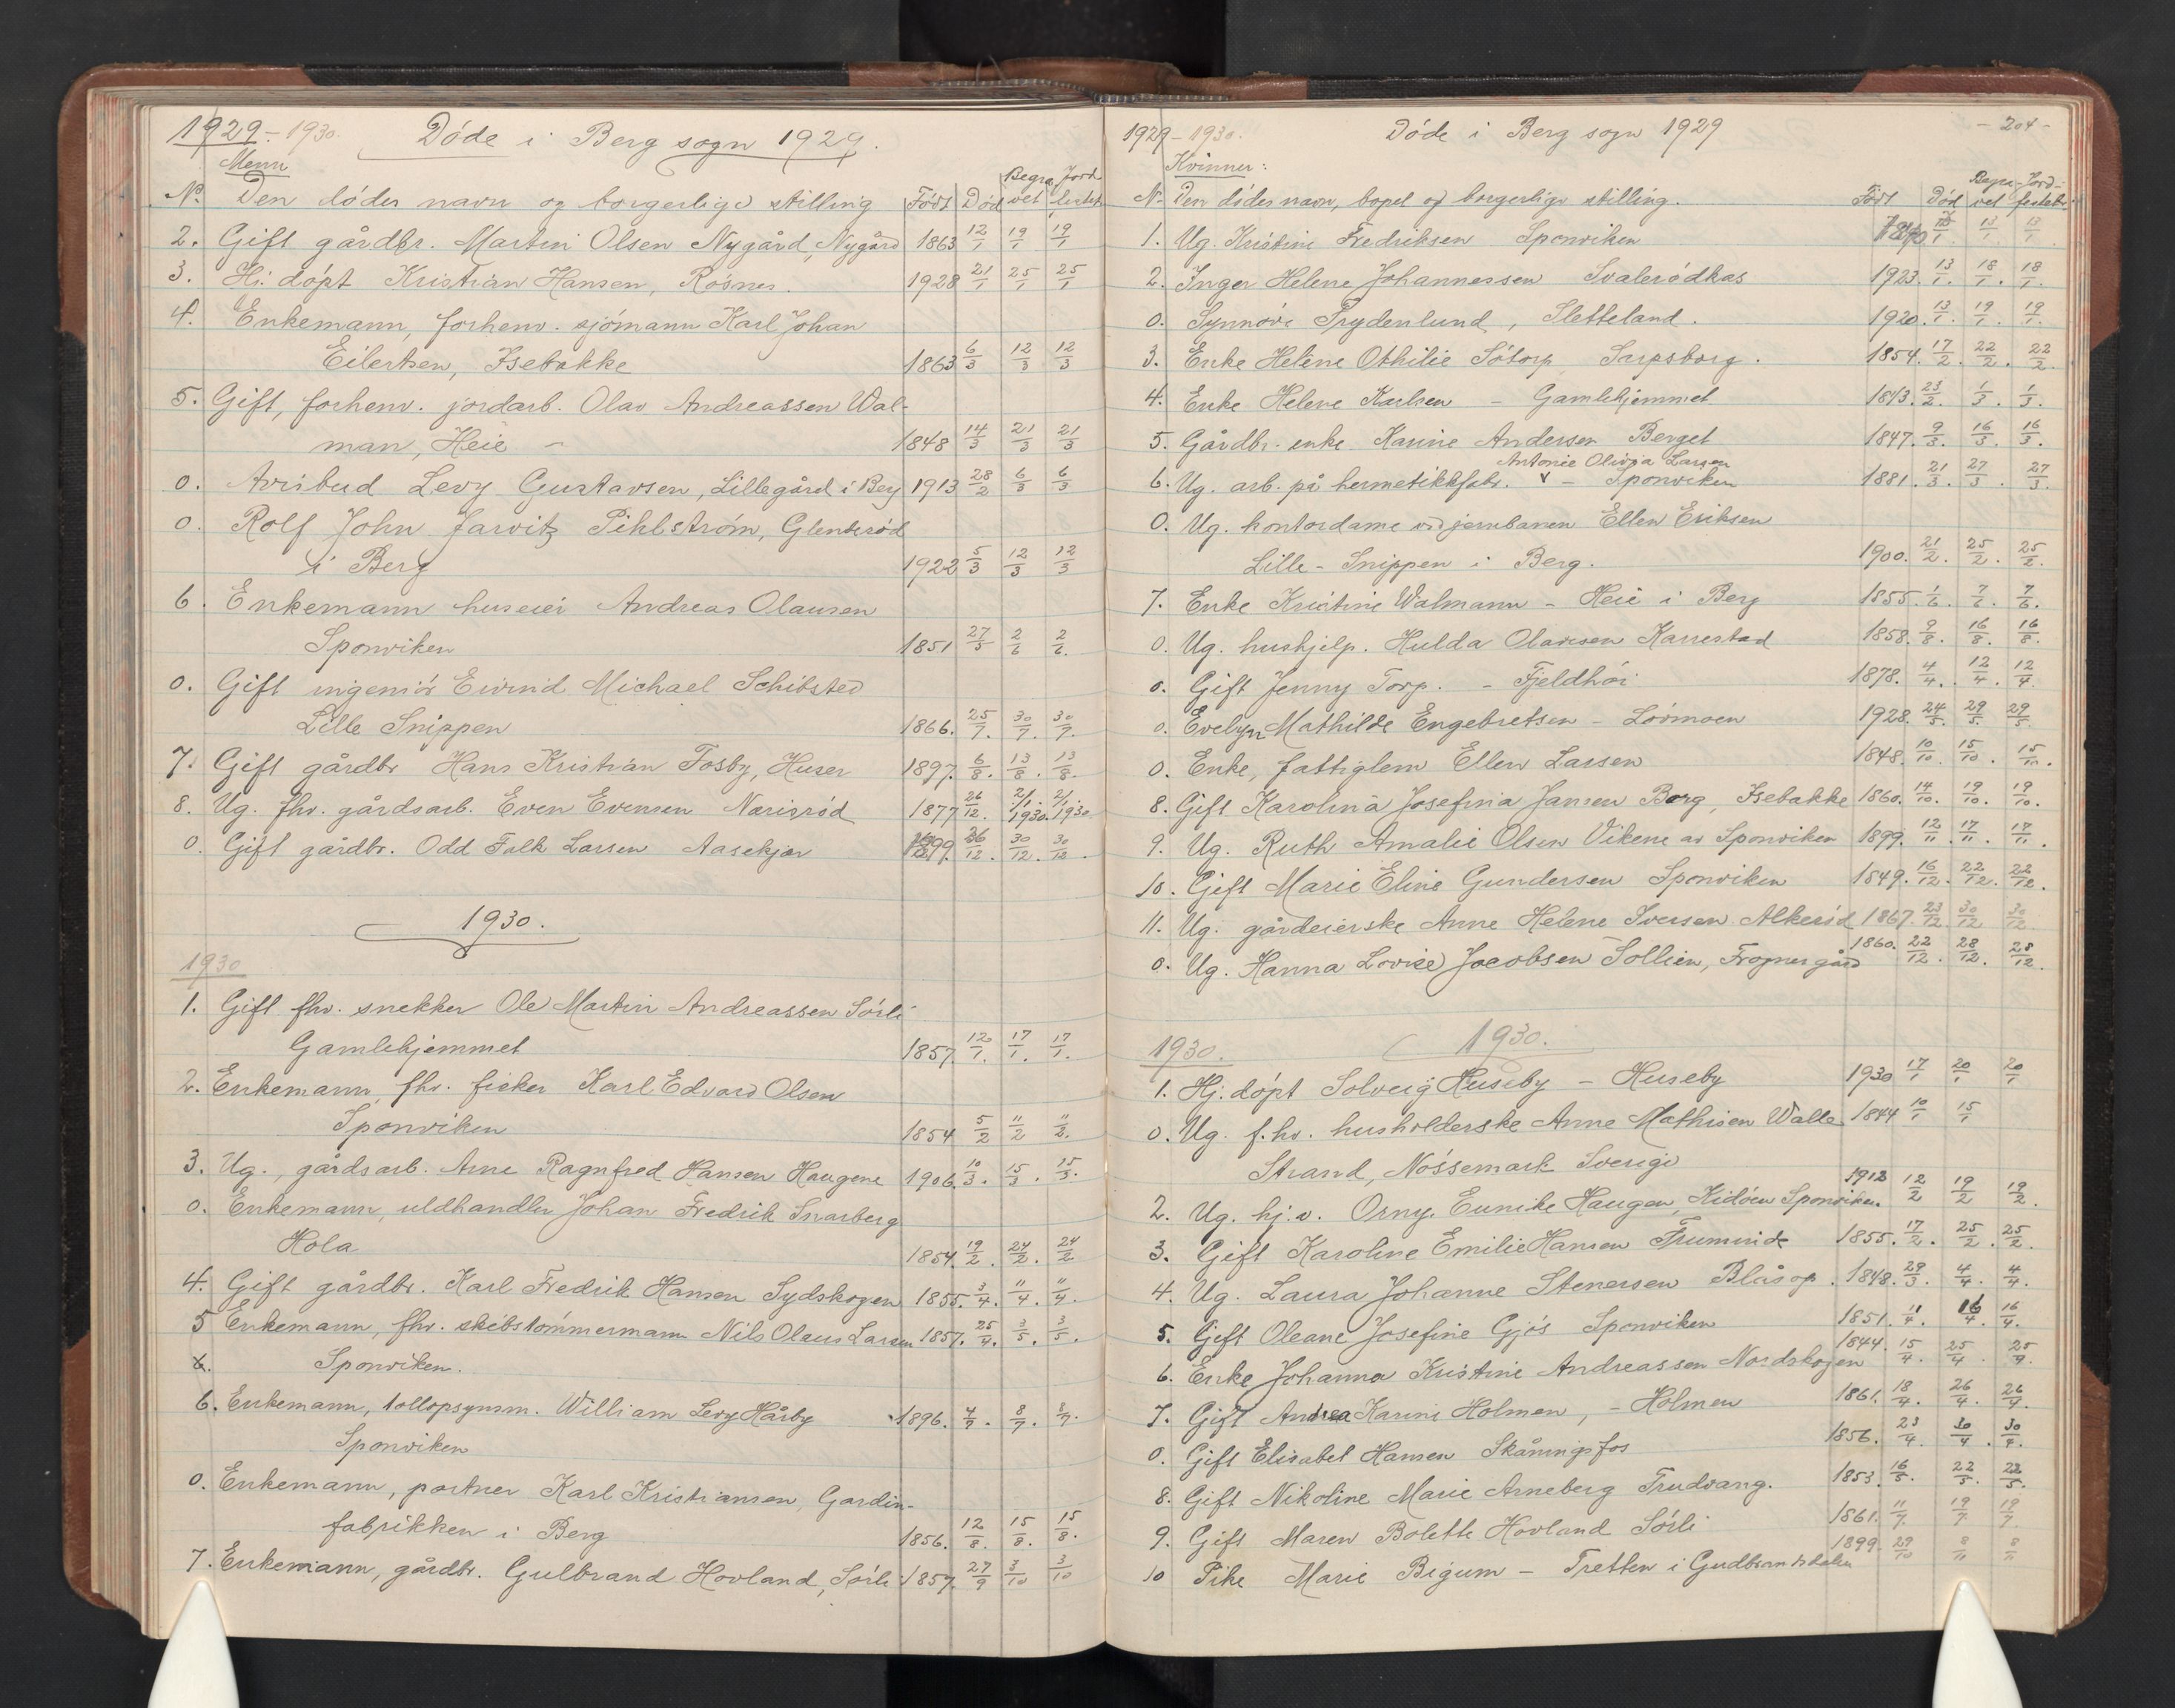 1929-1930. Døde i Berg sogn 1929.
Menn
No. Den dødes navn og borgerlige stilling Født Død Begravet Jordfestet
2. Gift gårdbr. Martin Olsen Nygård, Nygård 1863 12/1 19/1 19/1
3. Hj. døpt Kristian Hansen, Røsnes. 1928 21/1 25/1 25/1
4. Enkemann, forhenv. sjømann Karl Johan
Eilertsen, Isebakke 1863 6/3 12/3 12/3
5. Gift, forhenv. jordarb. Olav Andreassen Wal-
man, Heie - 1848 14/3 21/3 21/3
0. Avisbud Levy Gustavsen, Lillegård i Berg 1913 28/2 6/3 6/3
0. Rolf John Jarvitz Pihlstrøm, Glenterød
i Berg 1922 5/3 12/3 12/3
6. Enkemann huseier Andreas Olausen
Sponviken 1851 27/5 2/6 2/6.
0. Gift ingeniør Eivind Michael Schibsted
Lille Snippen 1866. 25/7. 30/7. 30/7.
7. Gift gårdbr Hans Kristian Fosby, Huser 1897. 6/8. 13/8. 13/8.
8. Ug. fhv. gårdsarb. Even Evensen Narisrød 1877 26/12. 2/1. 1930. 2/1. 1930.
0. Gift gårdbr. Odd Falk Larsen Aasekjær 1899. 26/12. 30/12. 30/12.
1930.
1930
1. Gift fhv. snekker Ole Martin Andreassen Sørli
Gamlehjemmet 1857. 12/1. 17/1. 17/1.
2. Enkemann, fhv. fisker Karl Edvard Olsen
Sponviken 1854 5/2 11/2 11/2.
3. Ug., gårdsarb. Arne Ragnfred Hansen Haugene 1906. 10/3. 15/3. 15/3.
0. Enkemann, uldhandler Johan Fredrik Snarberg
Hola 1854. 19/2. 24/2. 24/2
4. Gift gårdbr. Karl Fredrik Hansen Sydskogen 1855. 3/4. 11/4. 11/4.
5 Enkemann, fhv. skibstømmermann Nils Olaus Larsen 1857. 25/4. 3/5. 3/5.
6. Sponviken.
6. Enkemann, tollopsynsm. William Levy Hårby 1896. 4/7. 8/7. 8/7.
Sponviken
0. Enkemann, portner Karl Kristiansen, Gardin-
fabrikken i Berg 1856. 12/8. 15/8. 15/8.
7. Enkemann, gårdbr. Gulbrand Hovland, Sørli 1857. 27/9 3/10 3/10
1929-1930. Døde i Berg sogn 1929 - 204 -
Kvinner:
No. Den dødes navn, bopel og borgerlige stilling. Født Død Begravet Jordfestet
1. Ug. Kristine Fredriksen Sponviken 13/1. 13/1.
2. Inger Helene Johannessen Svalerødkas 1923. 13/1. 18/1. 18/1.
0. Synnøve Prydenlund, Sletteland. 1920. 13/1. 19/1. 19/1.
3. Enke Helene Othilie Søtorp Sarpsborg. 1854. 17/2. 22/2. 22/2.
4. Enke Helene Karlsen - Gamlehjemmet 1843. 23/2. 1/3. 1/3.
5. Gårdbr. enke Karine Andersen Berget 1847. 9/3. 16/3. 16/3.
Antonie Olivia Larsen
6. Ug. arb. på hermetikkfabr. v - Sponviken 1881. 21/3. 27/3. 27/3.
0. Ug. kontordame ved jernbanen Ellen Eriksen
Lille-Snippen i Berg. 1900. 21/2. 25/2. 25/2.
7. Enke Kristine Walmann - Heie i Berg 1855. 1/6. 7/6. 7/6.
0. Ug. hushjelp. Hulda Olavesen Karrestad 1858. 9/8. 16/8. 16/8.
0. Gift Jenny Torp. - Fjeldhøi 1878. 4/4. 12/4. 12/4
0. Evelyn Mathilde Engebretsen - Lørmoen 1928. 24/5. 29/5. 29/5.
0. Enke, fattiglem Ellen Larsen 1848. 10/10. 15/10. 15/10.
8. Gift Karolina Josefina Jansen Borg, Isebakke 1860. 14/10. 19/10. 19/10.
9. Ug. Ruth Amalie Olsen Vikene av Sponviken 1899. 12/11. 17/11. 17/11.
10. Gift Marie Eline Gundersen Sponviken 1849. 16/12. 22/12. 22/12.
11. Ug. gårdeierske Anne Helene Iversen Alkerød 1867. 23/12. 30/12 30/12.
0. Ug. Hanna Lovise Jacobsen Sollien, Frogner gård 1860. 22/12. 28/12. 28/12.
1930. 1930.
1. Hj. døpt Solveig Huseby - Huseby 1930 17/1 20/1 20/1
0. Ug. f.hv. husholderske Anne Mathisen Walle 1844 10/1 15/1
Strand, Nössemark Sverige
2. Ug. hj.v. Orny Eunike Haugen, Kidøen Sponviken. 1912 12/2 19/2 19/2.
3. Gift Karoline Emilie Hansen 1855. 17/2. 25/2. 25/2.
4. Ug. Laura Johanne Stenersen Blåsop. 1848. 29/3. 4/4. 4/4.
5. Gift Oleane Josefine Gjøs Sponviken 1851. 11/4. 16/4. 16/4.
6. Enke Johanna Kristine Andreassen Nordskogen 1844. 15/4. 25/4. 25/4.
7. Gift Andrea Karine Holmen, - Holmen 1861. 18/4. 26/4. 26/4.
0. Gift Elisabet Hansen Skåningsfos 1856. 23/4. 30/4. 30/4.
8. Gift Nikoline Marie Arneberg Trudvang. 1853. 16/5. 22/5. 22/5.
9. Gift Maren Bolette Hovland Sørli 1861. 11/7. 19/7. 19/7
10 Pike Marie Bigum - Tretten i Gudbrandsdalen 1899. 29/10 8/11 8/11